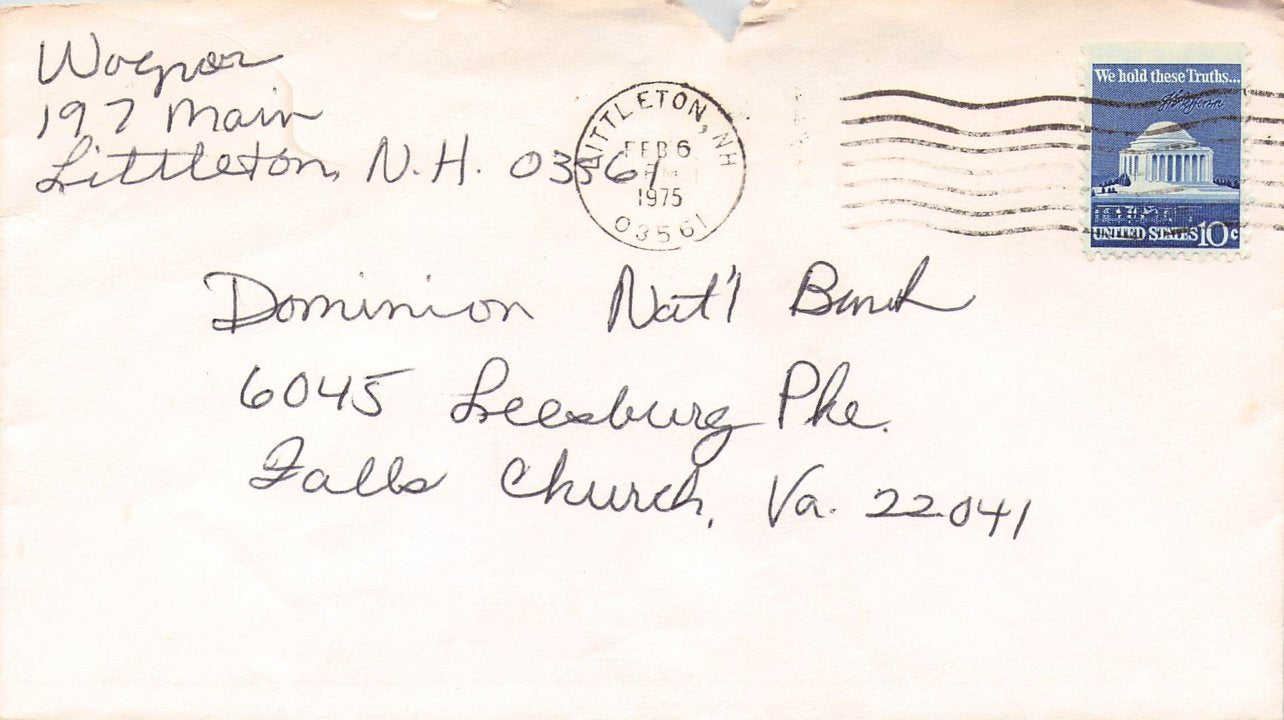 Wagner
197 Main
Littleton, N.H. 03561
LITTLETON, NH
FEB 6
PM
1975
03561
We hold these Truths...
UNITED STATES 10c
Dominion Nat'l Bank
6045 Leesburg Pke.
Falls Church, Va. 22041